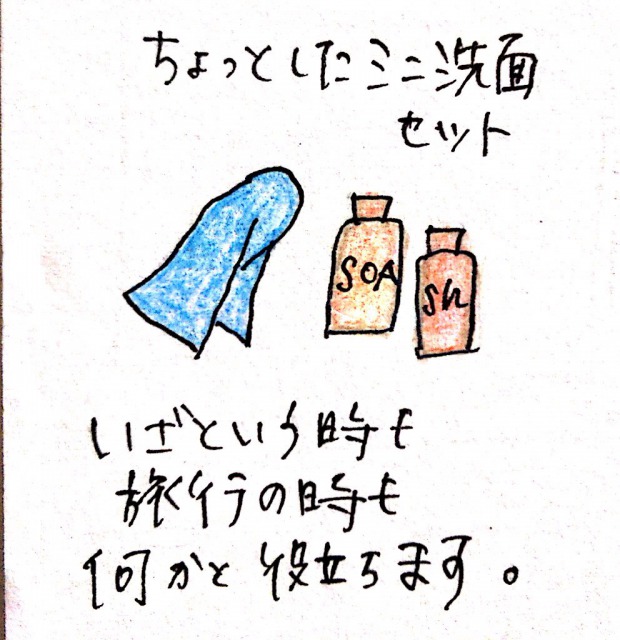 ちょっとしたミニ洗面
セット
SOA
Sh
いざという時も
旅行の時も
何かと役立ちます。